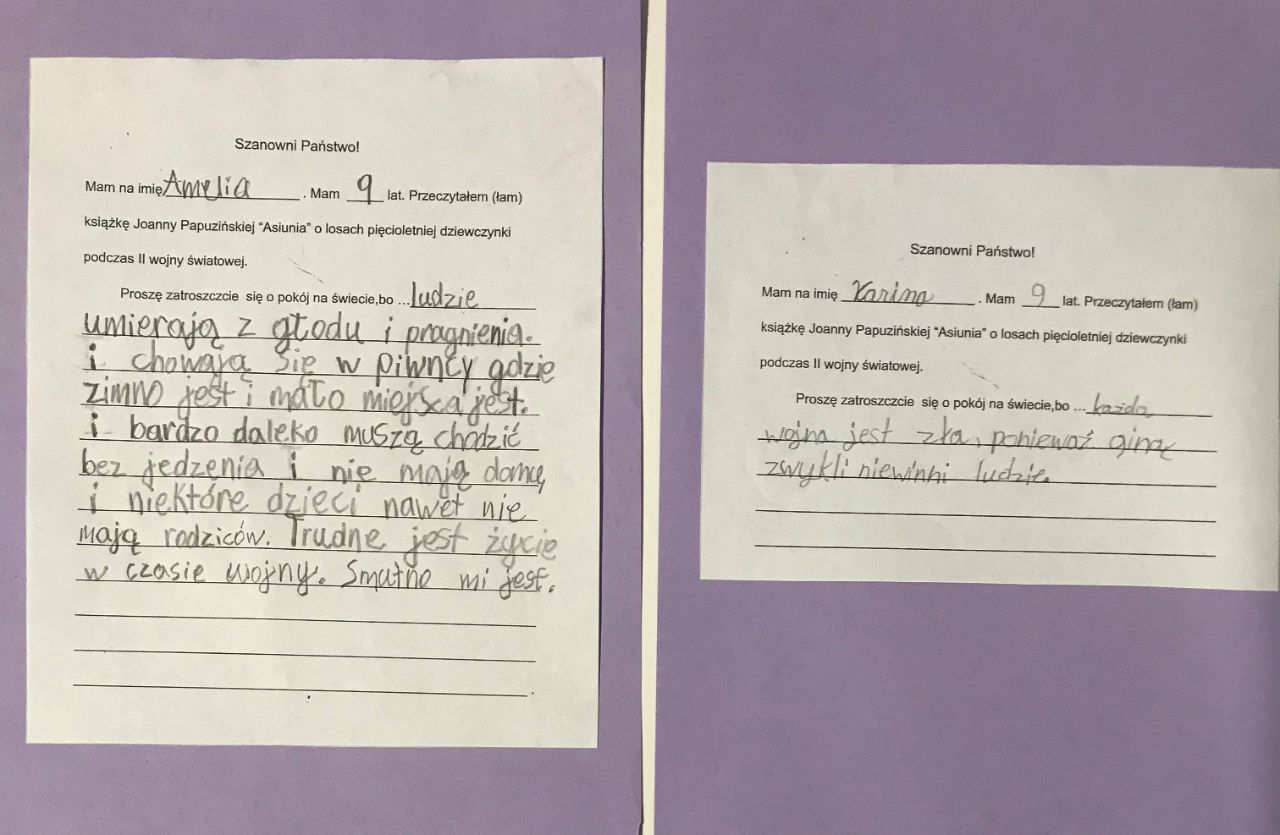 Szanowni Państwo!
Mam na imię Amelia . Mam 9 lat. Przeczytałem (łam)
książkę Joanny Papuzińskiej "Asiunia" o losach pięcioletniej dziewczynki
podczas II wojny światowej.
Proszę zatroszczcie się o pokój na świecie,bo ...ludzie
umierają z głodu i pragnienia.
i chowają się w piwncy gdzie
zimno jest i mało miejsca jest.
i bardzo daleko muszą chodzić
bez jedzenia i nie mają domu,
i niektóre dzieci nawet nie
mają rodziców. Trudne jest życie
w czasie wojny. Smutno mi jest.
Szanowni Państwo!
Mam na imię Karina . Mam 9 lat. Przeczytałem (łam)
książkę Joanny Papuzińskiej "Asiunia" o losach pięcioletniej dziewczynki
podczas II wojny światowej.
Proszę zatroszczcie się o pokój na świecie,bo ...każda
wojna jest zła, ponieważ giną
zwykli niewinni ludzie.